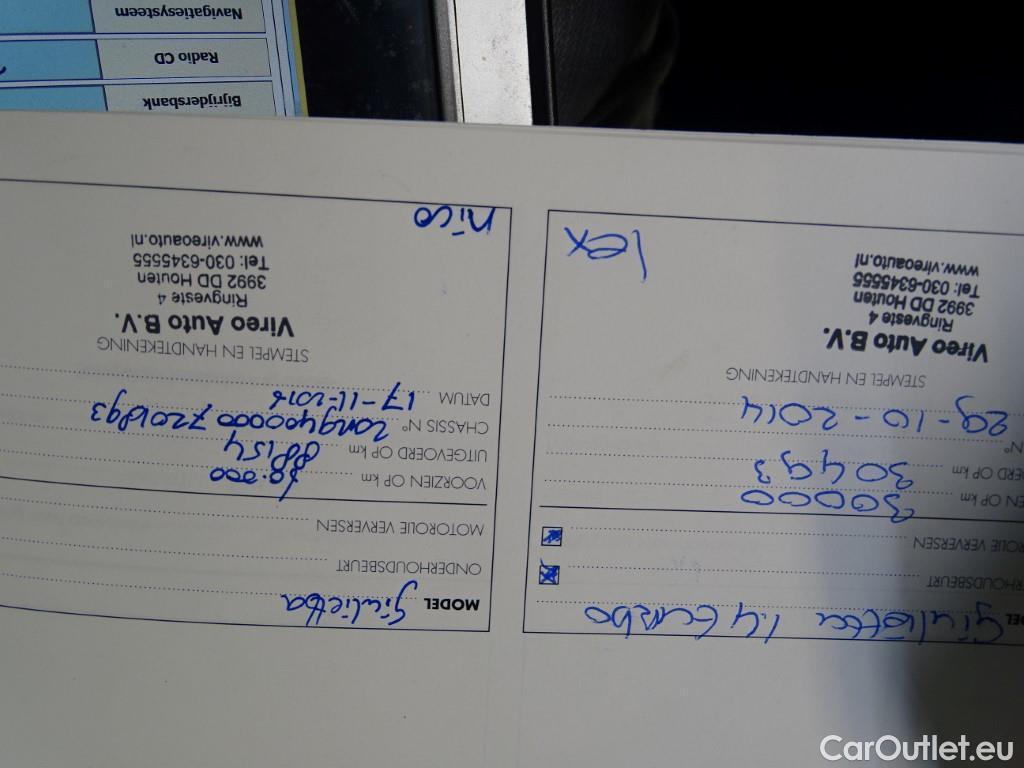 DEL Giulietta 1.4 Turbo
ERHOUDSBEURT
ROLIE VERVERSEN
EN OP km 30000
ERD OP km 30493
N°
29-10-2014
STEMPEL EN HANDTEKENING
Vireo Auto B.V.
Ringveste 4
3992 DD Houten
Tel: 030-6345555
www.vireoauto.nl
lex
MODEL Giulietta
ONDERHOUDSBEURT
MOTOROLIE VERVERSEN
VOORZIEN OP km
UITGEVOERD OP km 88154
CHASSIS N°
DATUM
STEMPEL EN HANDTEKENING
Vireo Auto B.V.
Ringveste 4
3992 DD Houten
Tel: 030-6345555
www.vireoauto.nl
nico
Bijrijdersbank
Radio CD
Navigatiesysteem
CarOutlet.eu